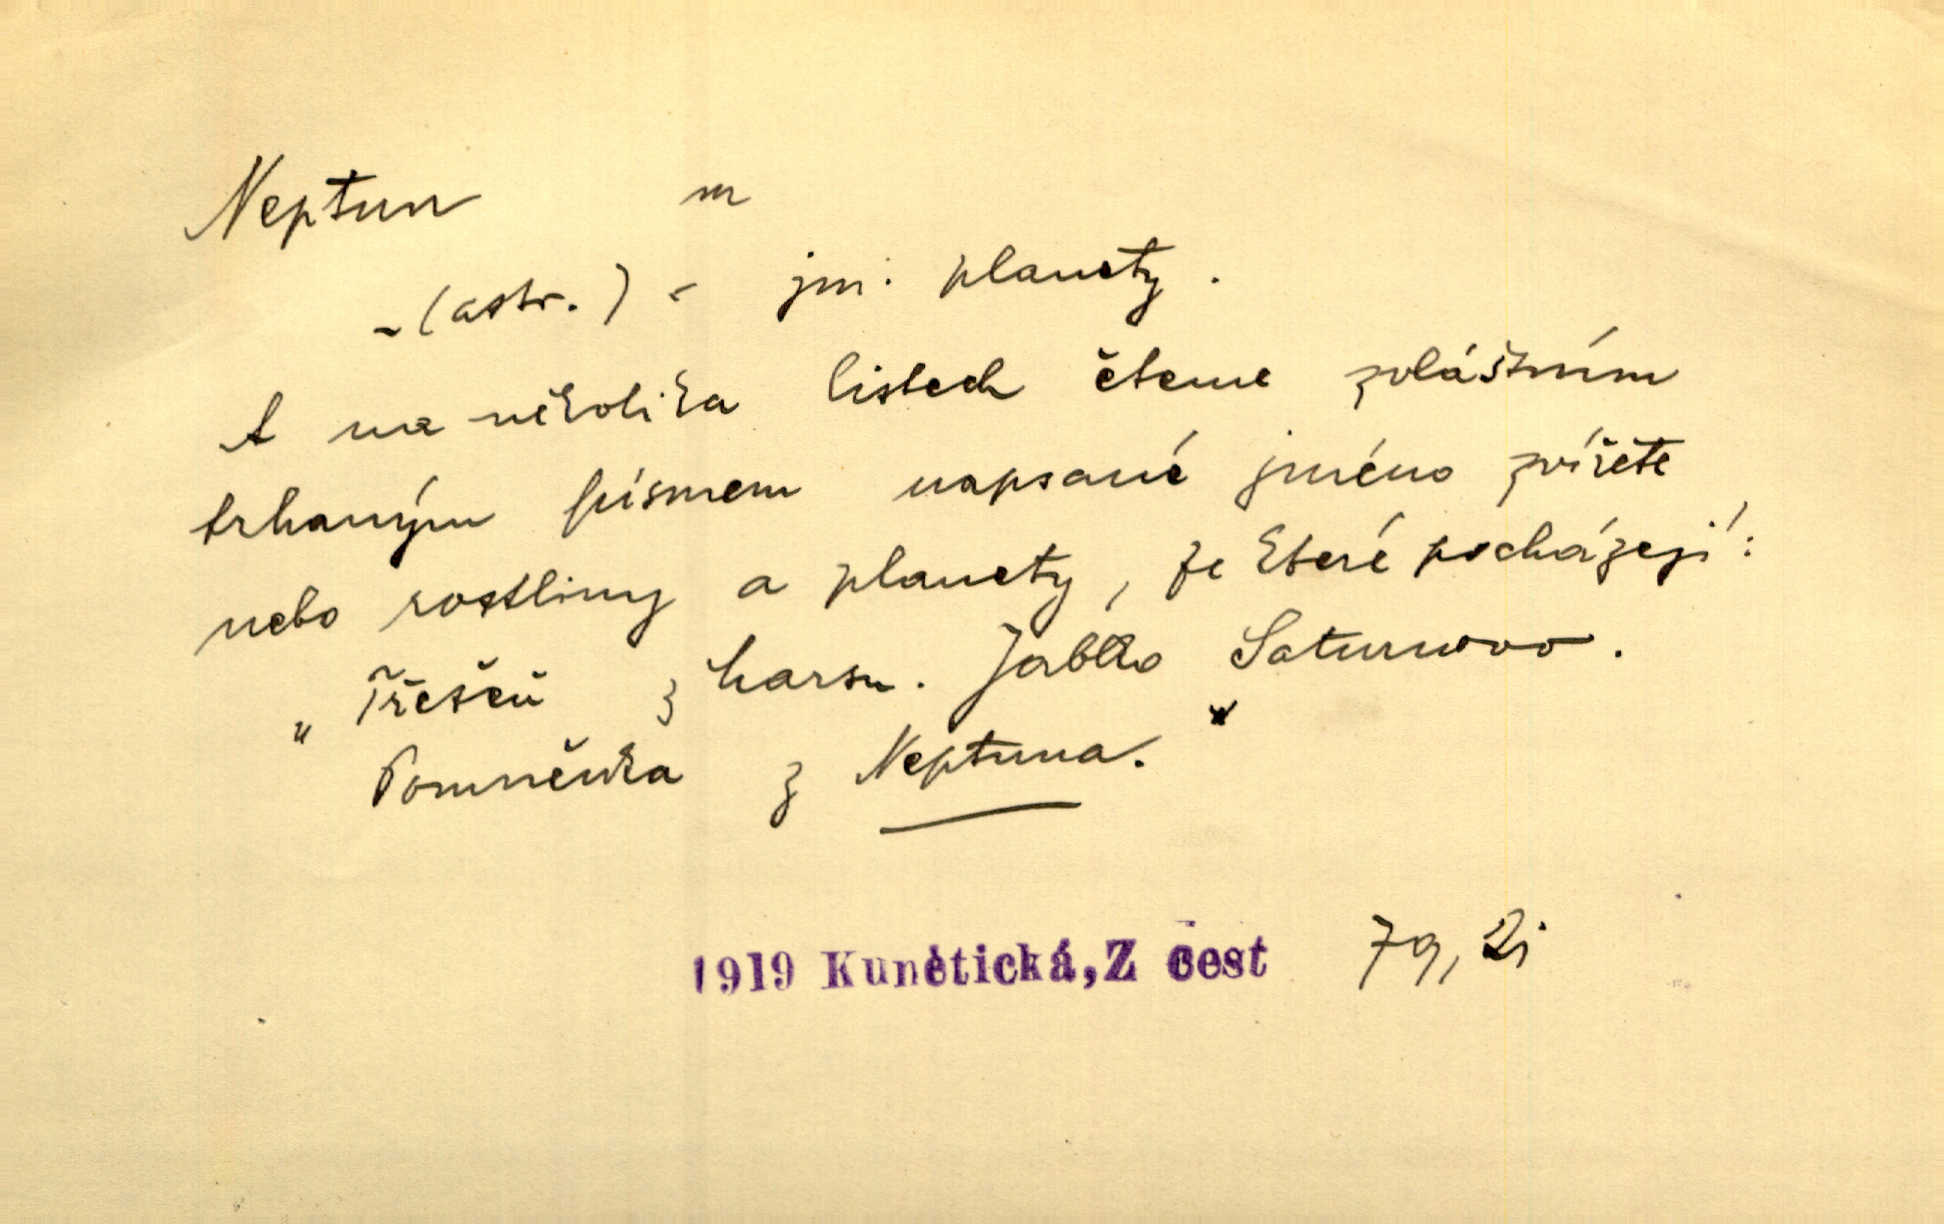 Neptun m
-(astr.) - jm. planety.
A na několika listech čteme zvláštním
trhaným písmem napsané jméno zvířete
nebo rostliny a planety, ze které pocházejí:
„Třešeň z Marsu. Jablko Saturnovo.
Pomněnka z Neptuna."
1919 Kunětická, Z cest 79, Di